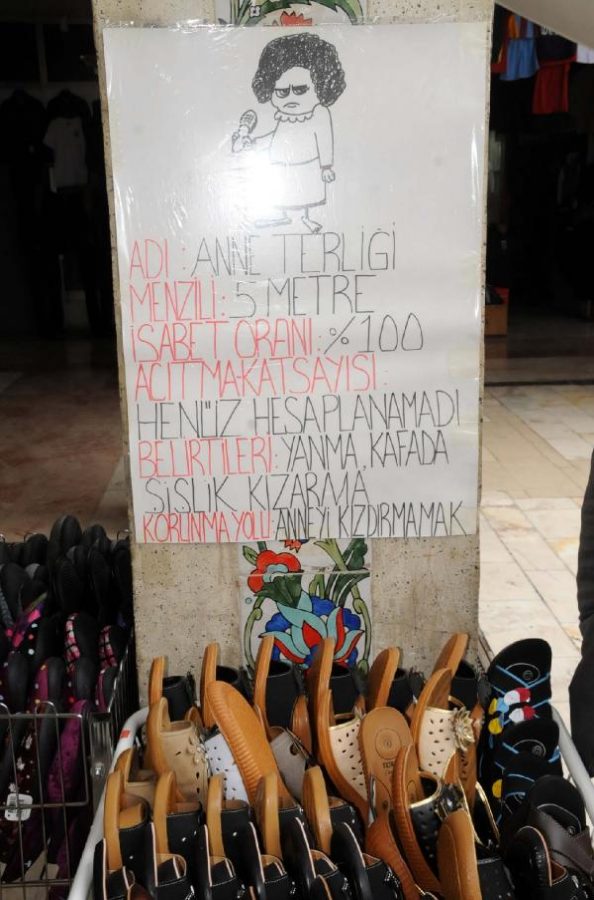 ADI : ANNE TERLİĞİ
MENZİLİ : 5 METRE
İSABET ORANI : %100
ACITMA KATSAYISI :
HENÜZ HESAPLANAMADI
BELİRTİLERİ : YANMA, KAFADA
ŞİŞLİK KIZARMA
KORUNMA YOLU : ANNEYİ KIZDIRMAMAK